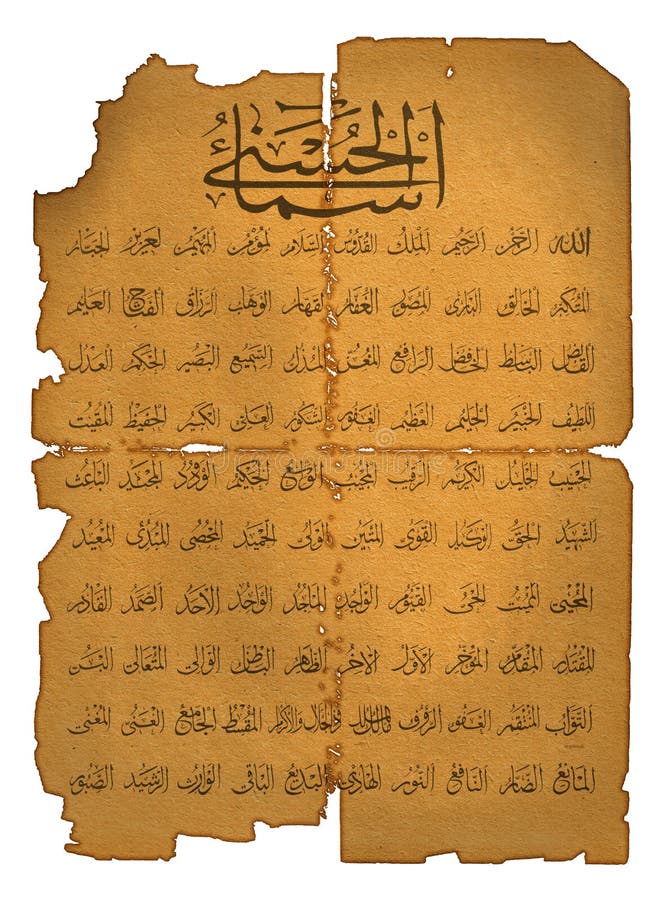 أسماء الحسنى
الله الرحمن الرحيم الملك القدوس السلام المؤمن المهيمن العزيز الجبار
المتكبر الخالق البارئ المصور الغفار القهار الوهاب الرزاق الفتاح العليم
القابض الباسط الخافض الرافع المعز المذل السميع البصير الحكم العدل
اللطيف الخبير الحليم العظيم الغفور الشكور العلي الكبير الحفيظ المقيت
الحسيب الجليل الكريم الرقيب المجيب الواسع الحكيم الودود المجيد الباعث
الشهيد الحق الوكيل القوي المتين الولي الحميد المحصي المبدئ المعيد
المحيي المميت الحي القيوم الواجد الماجد الواحد الأحد الصمد القادر
المقتدر المقدم المؤخر الأول الآخر الظاهر الباطن الوالي المتعالي البر
التواب المنتقم العفو الرؤوف مالك الملك ذو الجلال والإكرام المقسط الجامع الغني المغني
المانع الضار النافع النور الهادي البديع الباقي الوارث الرشيد الصبور